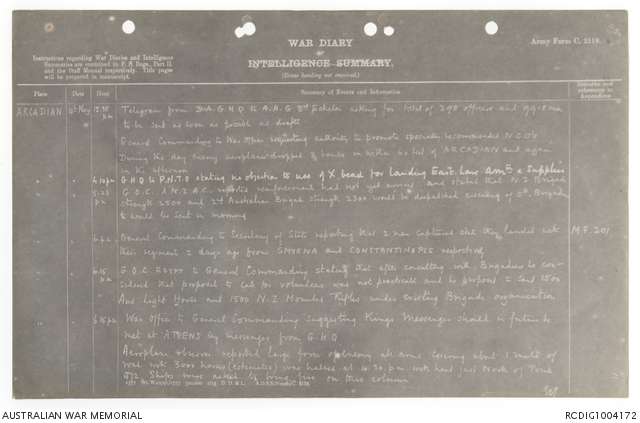 WAR DIARY
or
INTELLIGENCE SUMMARY.
(Erase heading not required).
Army Form C. 2118.
Instructions regarding War Diaries and Intelligence
Summaries are contained in F. S. Regs., Part II.
and the Staff Manual respectively. Title pages
will be prepared in manuscript.
Place Date Hour Summary of Events and Information Remarks and
references to
Appendices
ARCADIAN May Telegram from D.A.G. GHQ to A.A.G. 3rd Echelon asking for total of 298 officers and
to be sent as soon as possible as drafts
General Commanding to War Office requesting authority to promote specially recommended N.C.O's
During the day enemy aeroplane dropped 2 bombs on within 100 feet of ARCADIAN and again
in the afternoon
G.H.Q to P.N.T.O stating no objection to use of X beach for landing East. Lanc Amn & Supplies
G.O.C. A.N.Z.A.C. reports reinforcement had not yet arrived and stated that N.Z Brigade
strength 2500 and 2nd Australian Brigade strength 2300 would be despatched evening of 5th, Brigade
to would be sent in morning
General Commanding to Secretary of State reporting that 2 men captured state they landed with
their regiment 2 days ago from SMYRNA and CONSTANTINOPLE respectively
M.F. 201
6.15 pm G.O.C EGYPT to General Commanding stating that after consulting with Brigadiers he con-
sidered that proposal to call for volunteers was not practicable and he proposed to send 1500
Aus Light Horse and 1500 N.Z Mounted Rifles under existing Brigade organization
War Office to General Commanding suggesting Kings Messenger should in future be
met at ATHENS by messenger from G.H.Q
Aeroplane observer reported large force of enemy all arms covering about 1 mile of
road with 3000 horses (estimated) was halted at 4.30 p.m. with head just North of
Ships were asked to bring fire on this column
AUSTRALIAN WAR MEMORIAL
RCDIG1004172